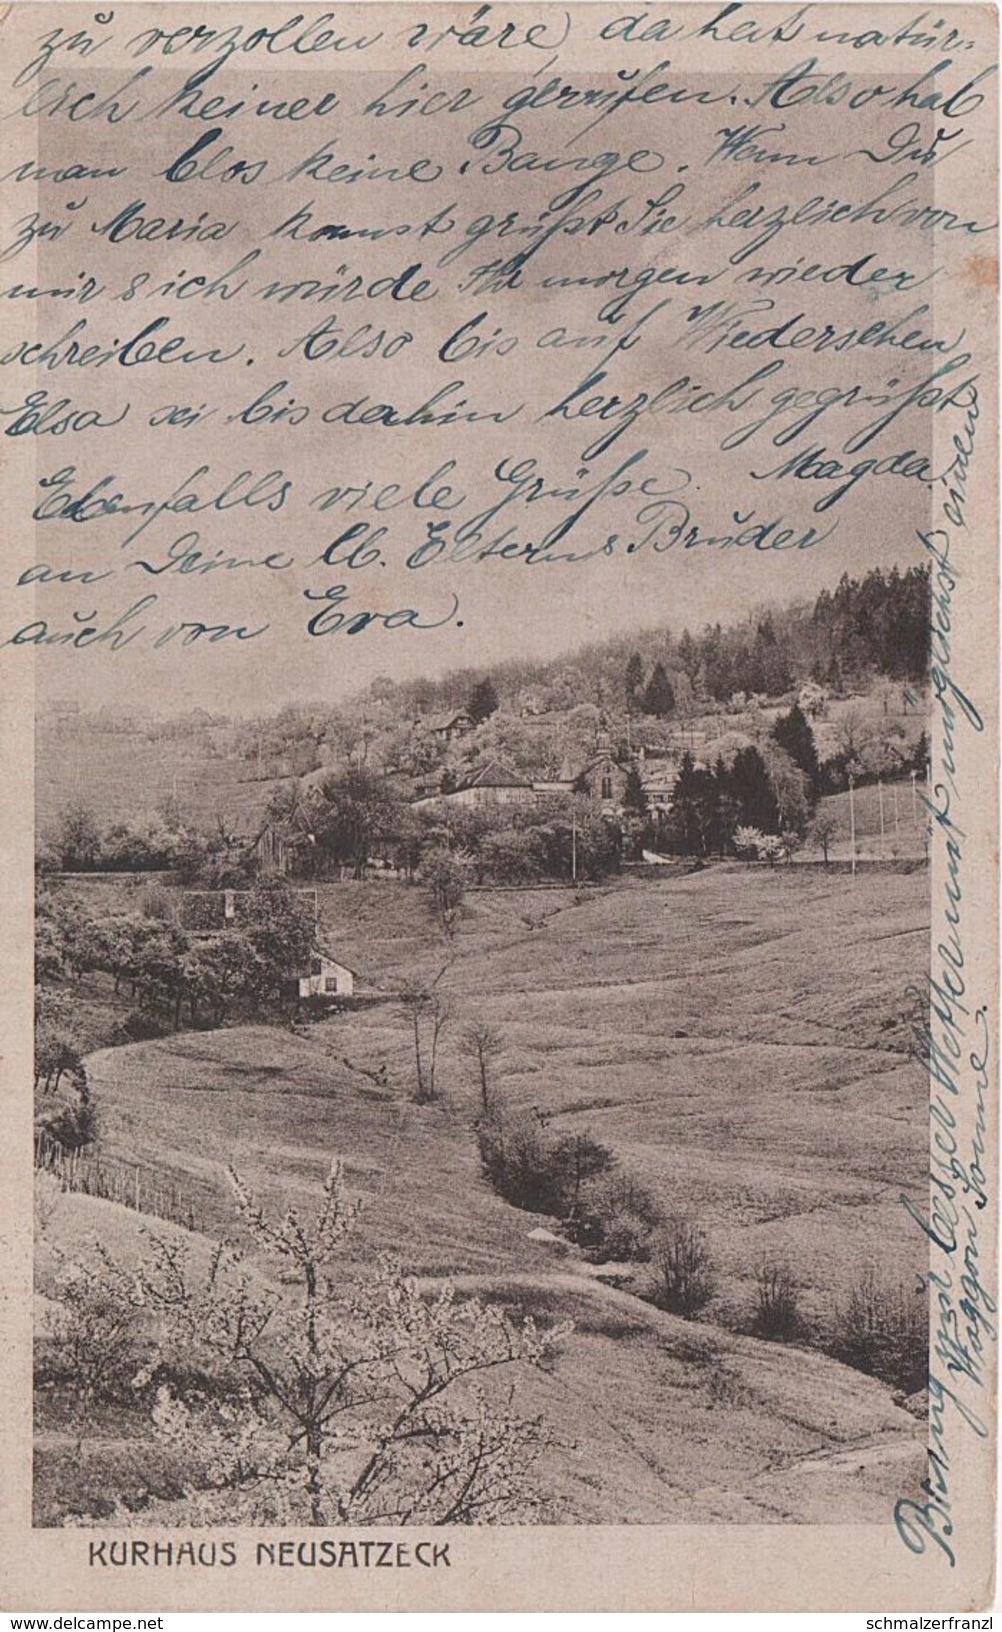 zu verzollen wäre, da hat natür-
lich keiner hier gerufen. Also hab
man blos keine Bange. Wenn Du
zu Maria kommst grüßt Sie herzlich von
mir & ich würde Ihr morgen wieder
schreiben. Also bis auf Wiedersehen
Elsa sei bis dahin herzlich gegrüßt
Ebenfalls viele Grüße. Magda
an Deine lb. Eltern & Bruder
auch von Eva.
Bring uns besser Wetter mit, möglichst einen
Waggon Sonne.
KURHAUS NEUSATZECK
https://www.ansichtskarten-lexikon.de
schmalzerfranzl